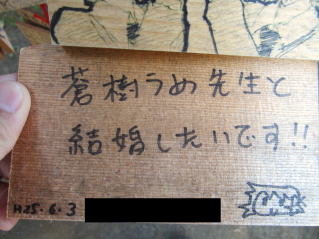 蒼樹うめ先生と
結婚したいです!!
H25.6.3